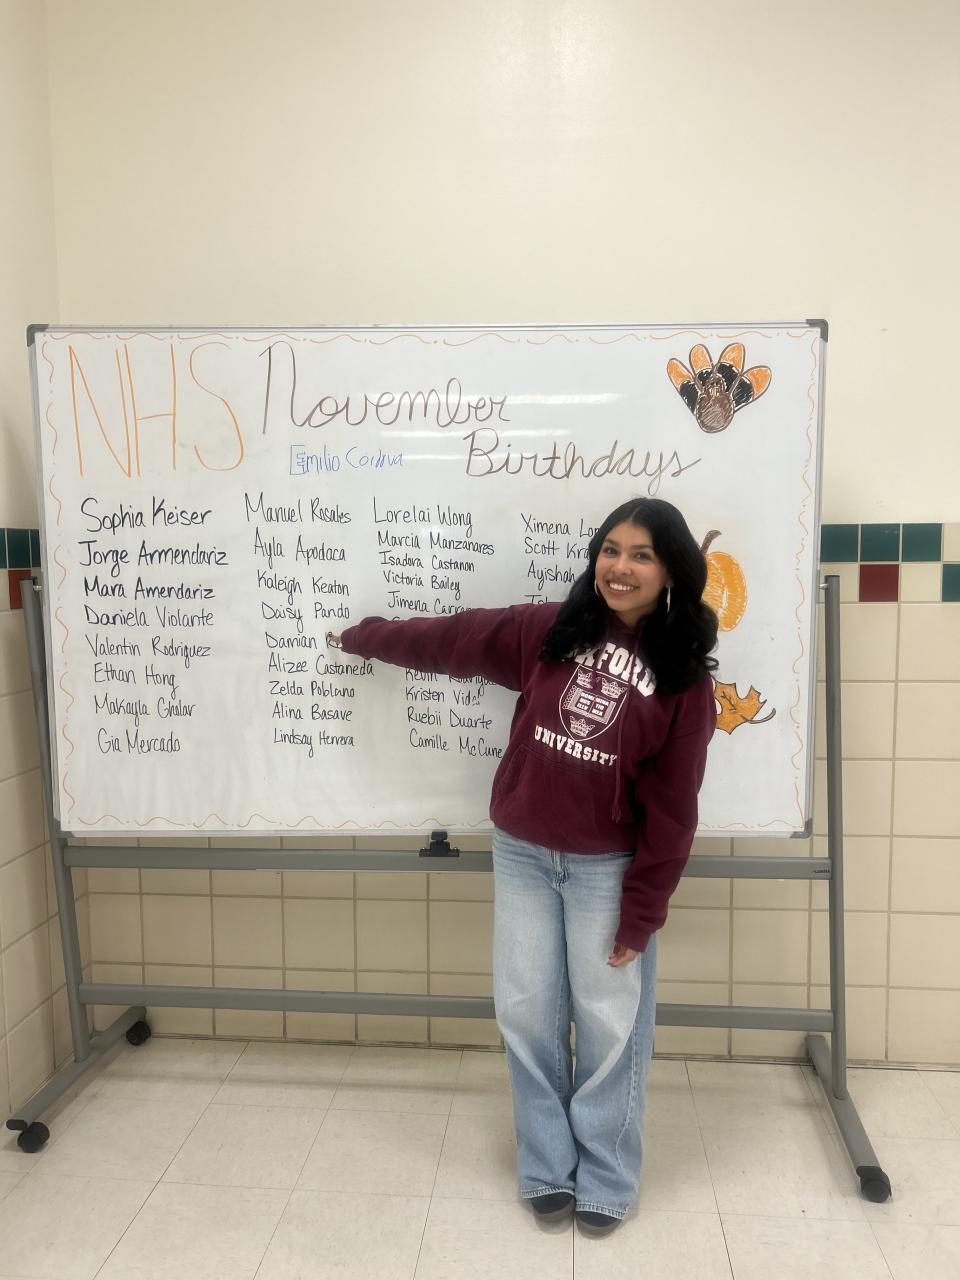 NHS November
Birthdays
Emilio Cordova
Sophia Keiser
Jorge Armendariz
Mara Amendariz
Daniela Violante
Valentin Rodriguez
Ethan Hong
Makayla Ghalar
Gia Mercado
Manuel Rosales
Ayla Apodaca
Kaleigh Keaton
Daisy Pando
Damian
Alizee Castaneda
Zelda Poblano
Alina Basave
Lindsay Herrera
Lorelai Wong
Marcia Manzanares
Isadora Castanon
Victoria Bailey
Jimena
Kevin
Kristen Vidal
Ruebii Duarte
Camille McCune
Ximena
Scott
Ayishah
OXFORD
UNIVERSITY